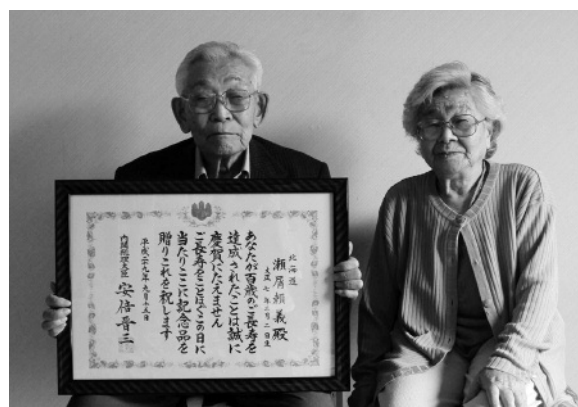 北海道
瀬屑頼義殿
大正七年一月二日生
あなたが百歳のご長寿を
達成されたことは誠に
慶賀にたえません
ご長寿をことほぐこの日に
当たりここに記念品を
贈りこれを祝します
平成二十九年九月十五日
内閣総理大臣 安倍晋三